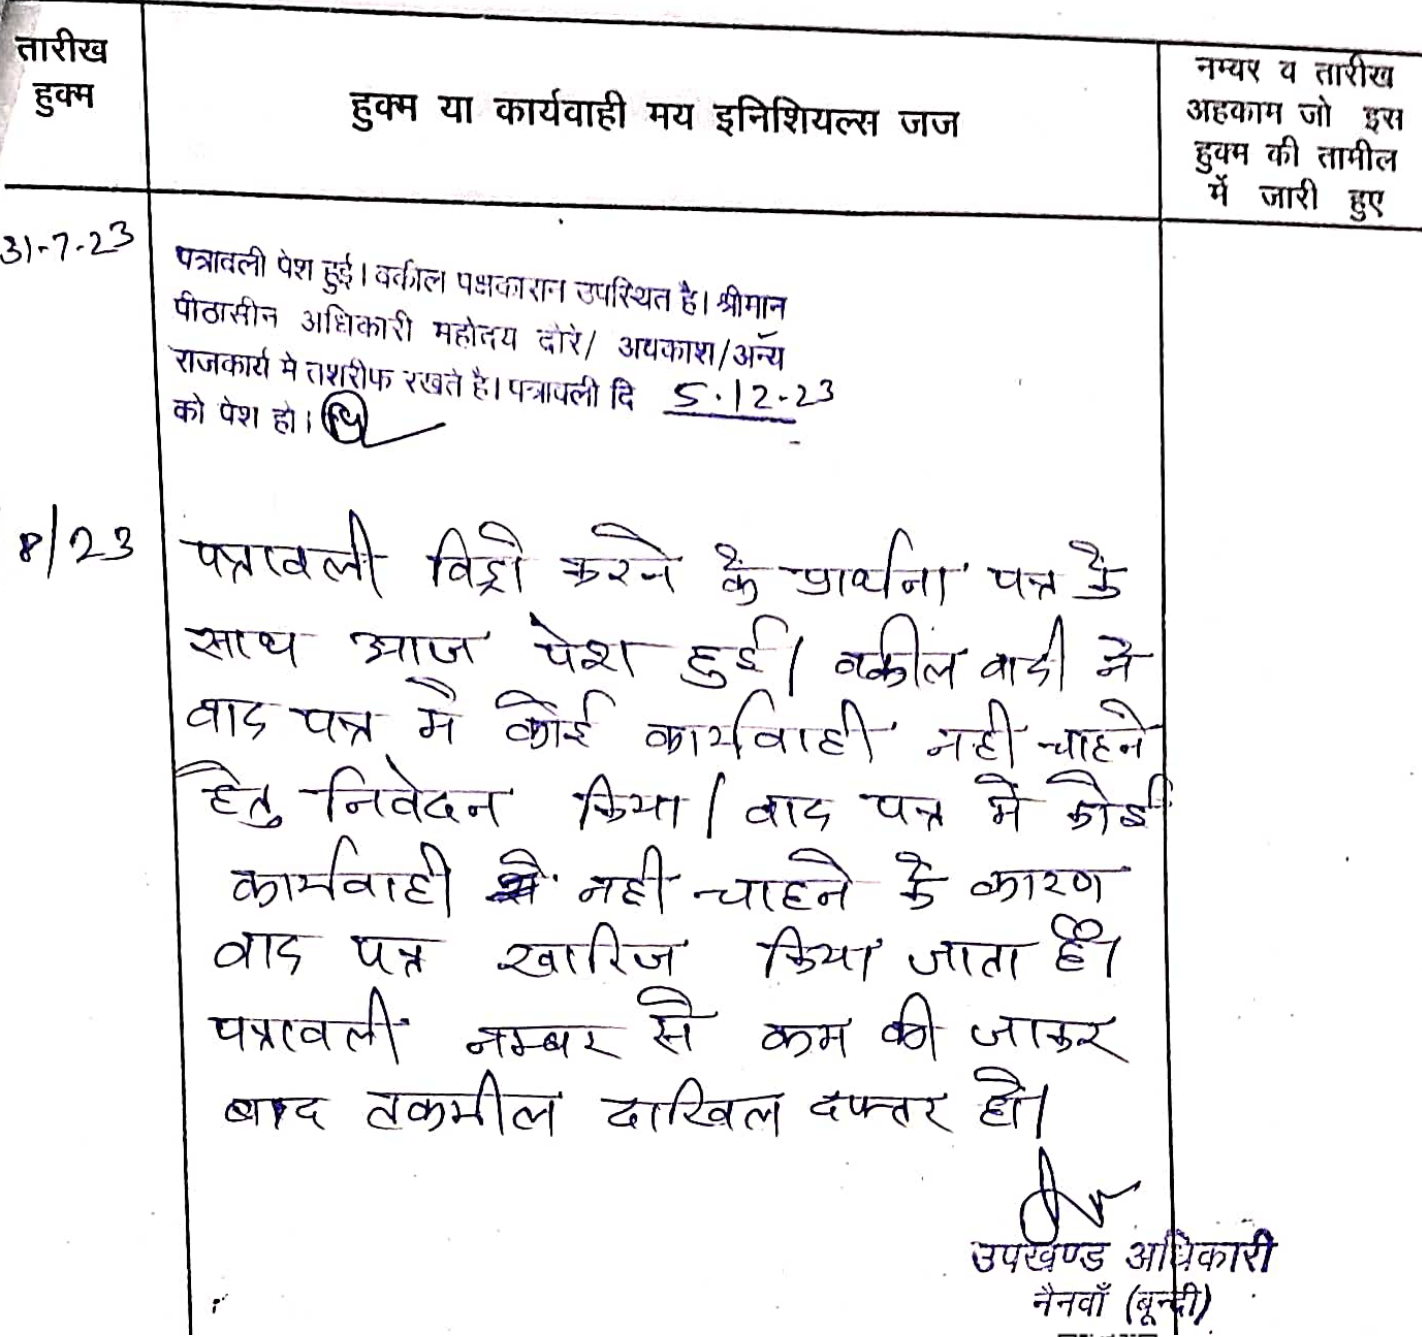 तारीख
हुक्म
हुक्म या कार्यवाही मय इनिशियल्स जज
नम्बर व तारीख
अहकाम जो इस
हुक्म की तामील
में जारी हुए
31-7-23
पत्रावली पेश हुई। वकील पक्षकारान उपस्थित है। श्रीमान
पीठासीन अधिकारी महोदय दौरे/ अवकाश/अन्य
राजकार्य मे तशरीफ रखते है। पत्रावली दि 5.12-23
को पेश हो।
8/23
पत्रावली विड्रो करने के प्रार्थना पत्र के
साथ आज पेश हुई। वकील वादी ने
वाद पत्र मे कोई कार्यवाही नही चाहने
हेतु निवेदन किया। वाद पत्र मे कोई
कार्यवाही नही चाहने के कारण
वाद पत्र खारिज किया जाता है।
पत्रावली नम्बर से कम की जाकर
बाद तकमील दाखिल दफ्तर हो।
उपखण्ड अधिकारी
नैनवाँ (बून्दी)